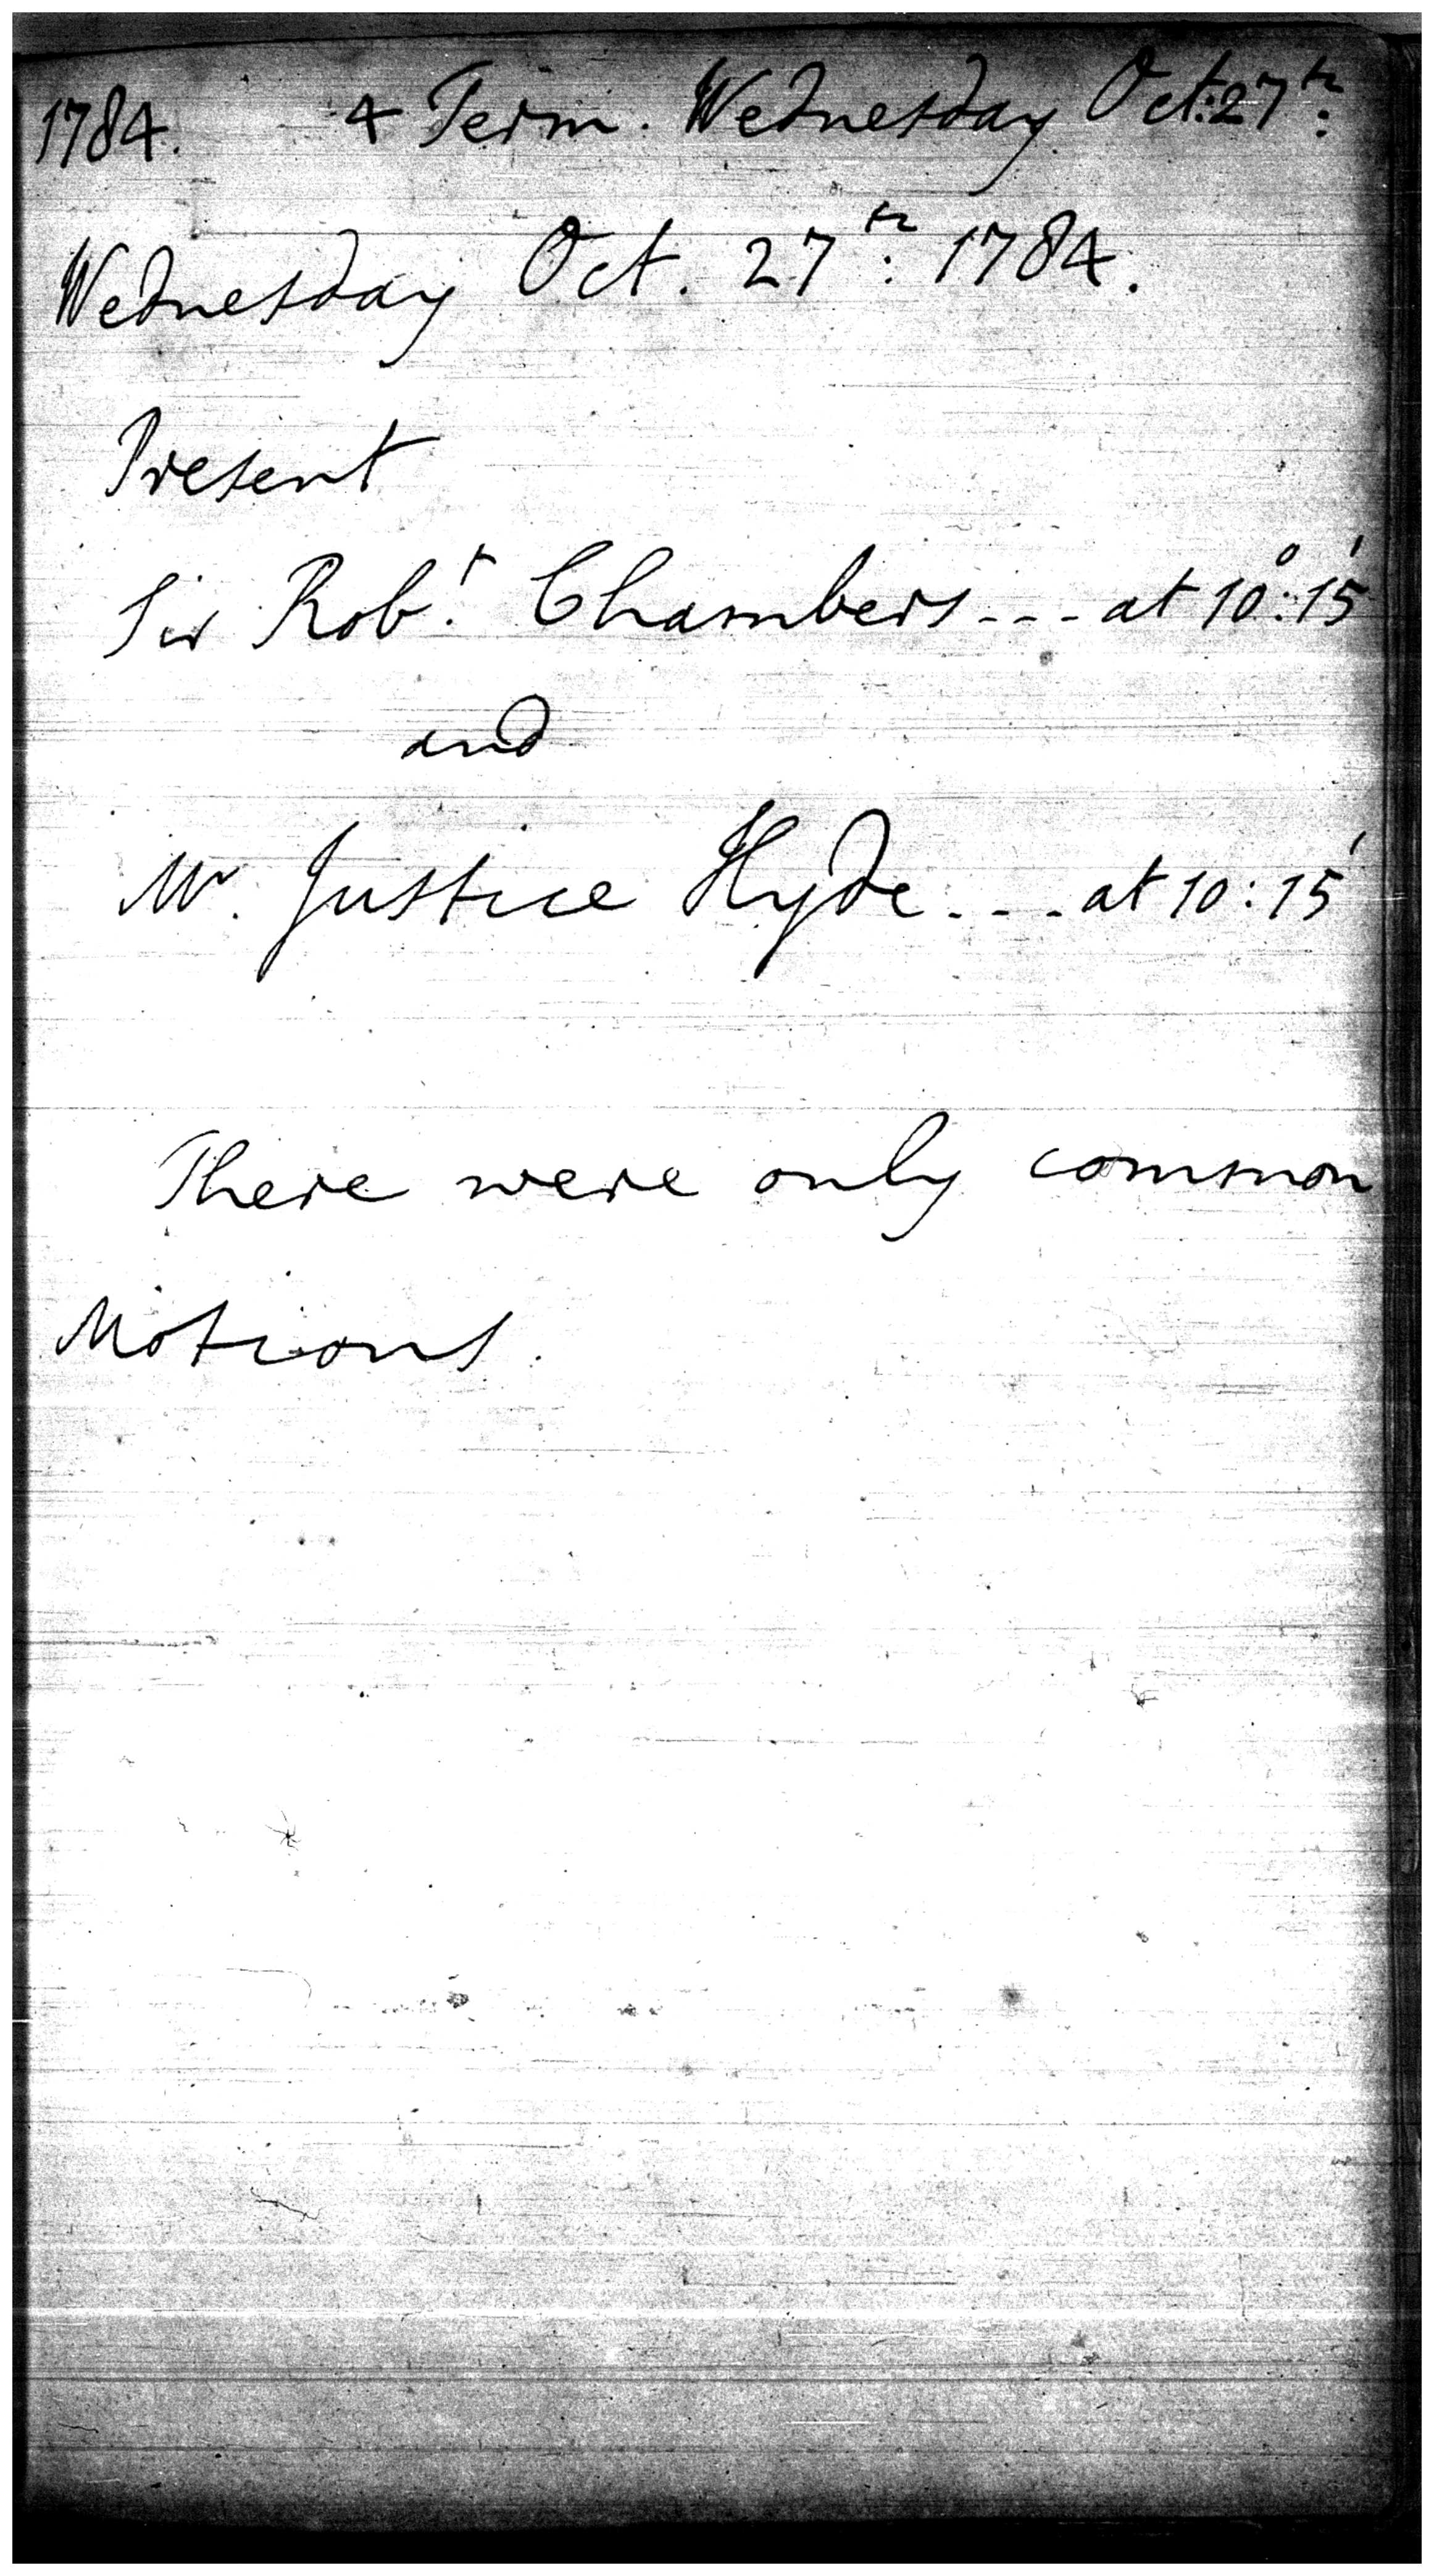 1784. 4 Term. Wednesday Oct: 27th:
Wednesday Oct. 27th: 1784.
Present
Sir Robt. Chambers --- at 10°: 15'
and
Mr. Justice Hyde --- at 10: 15'
There were only common
Motions.